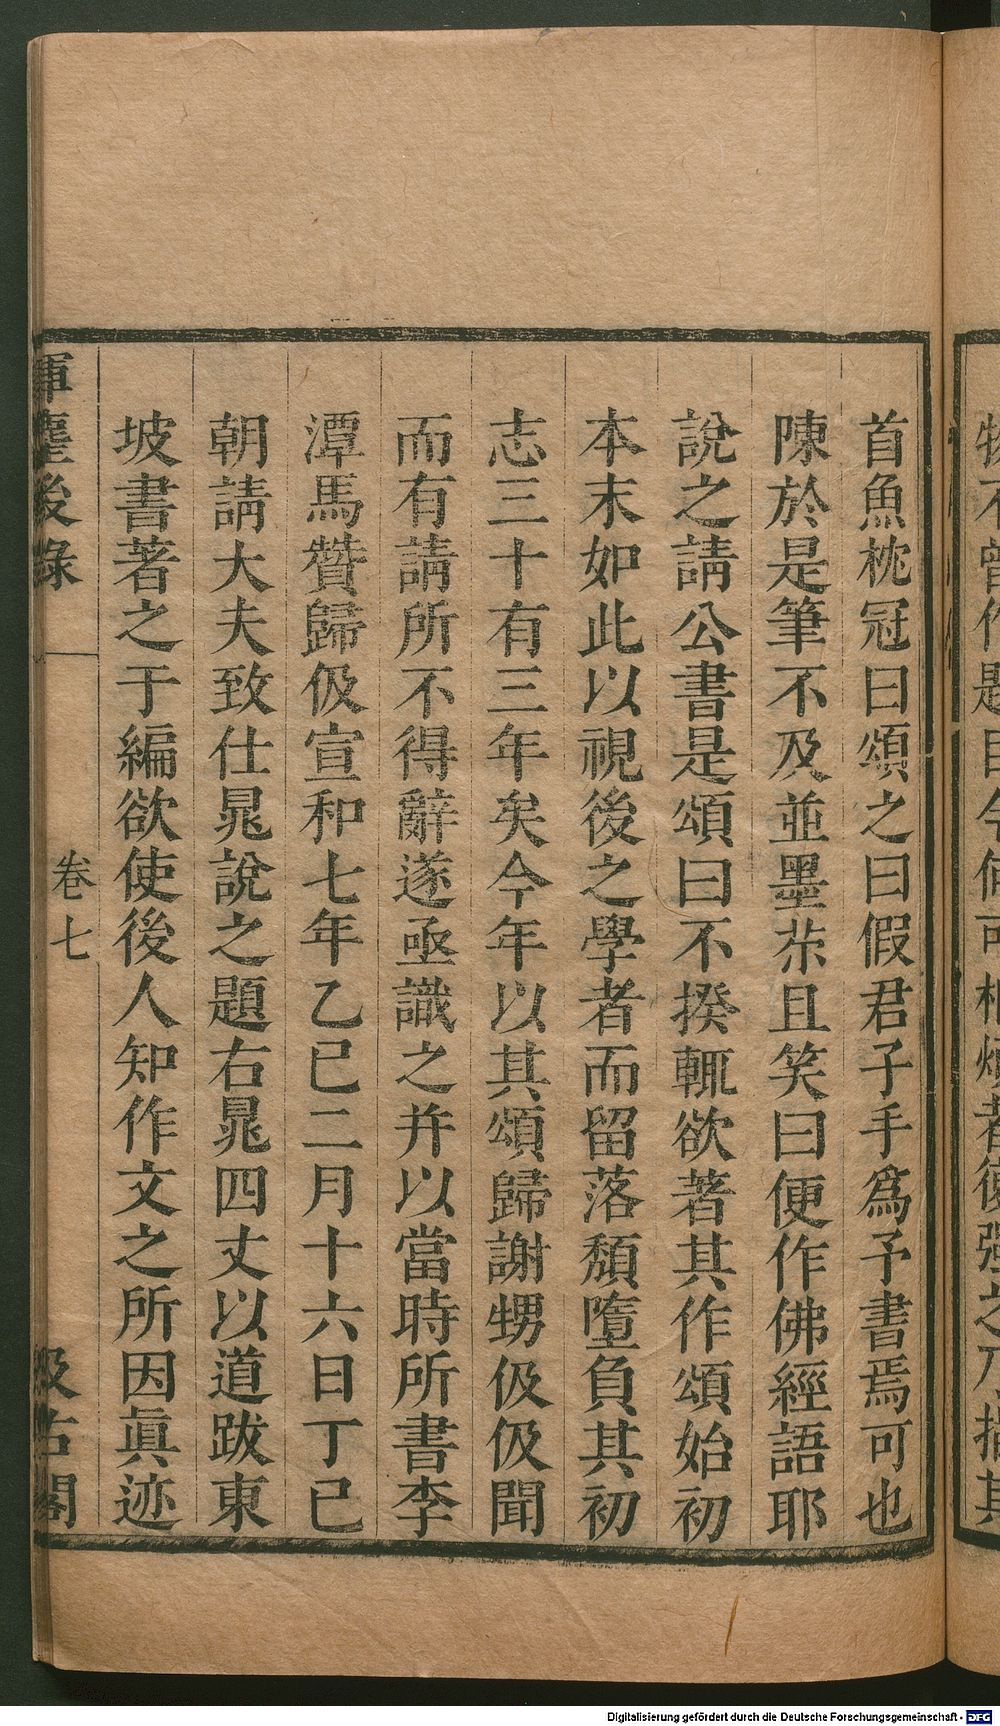 首魚枕冠曰頌之曰假君子手爲予書焉可也
陳於是筆不及並墨茶且笑曰便作佛經語耶
說之請公書是頌曰不揆輒欲著其作頌始初
本末如此以視後之學者而留落頹墮負其初
志三十有三年矣今年以其頌歸謝甥伋伋聞
而有請所不得辭遂亟識之并以當時所書李
潭馬贊歸伋宣和七年乙巳二月十六日丁巳
朝請大夫致仕晁說之題右晁四丈以道跋東
坡書著之于編欲使後人知作文之所因眞迹
揮麈後錄
卷七
汲古閣
Digitalisierung gefördert durch die Deutsche Forschungsgemeinschaft - DFG